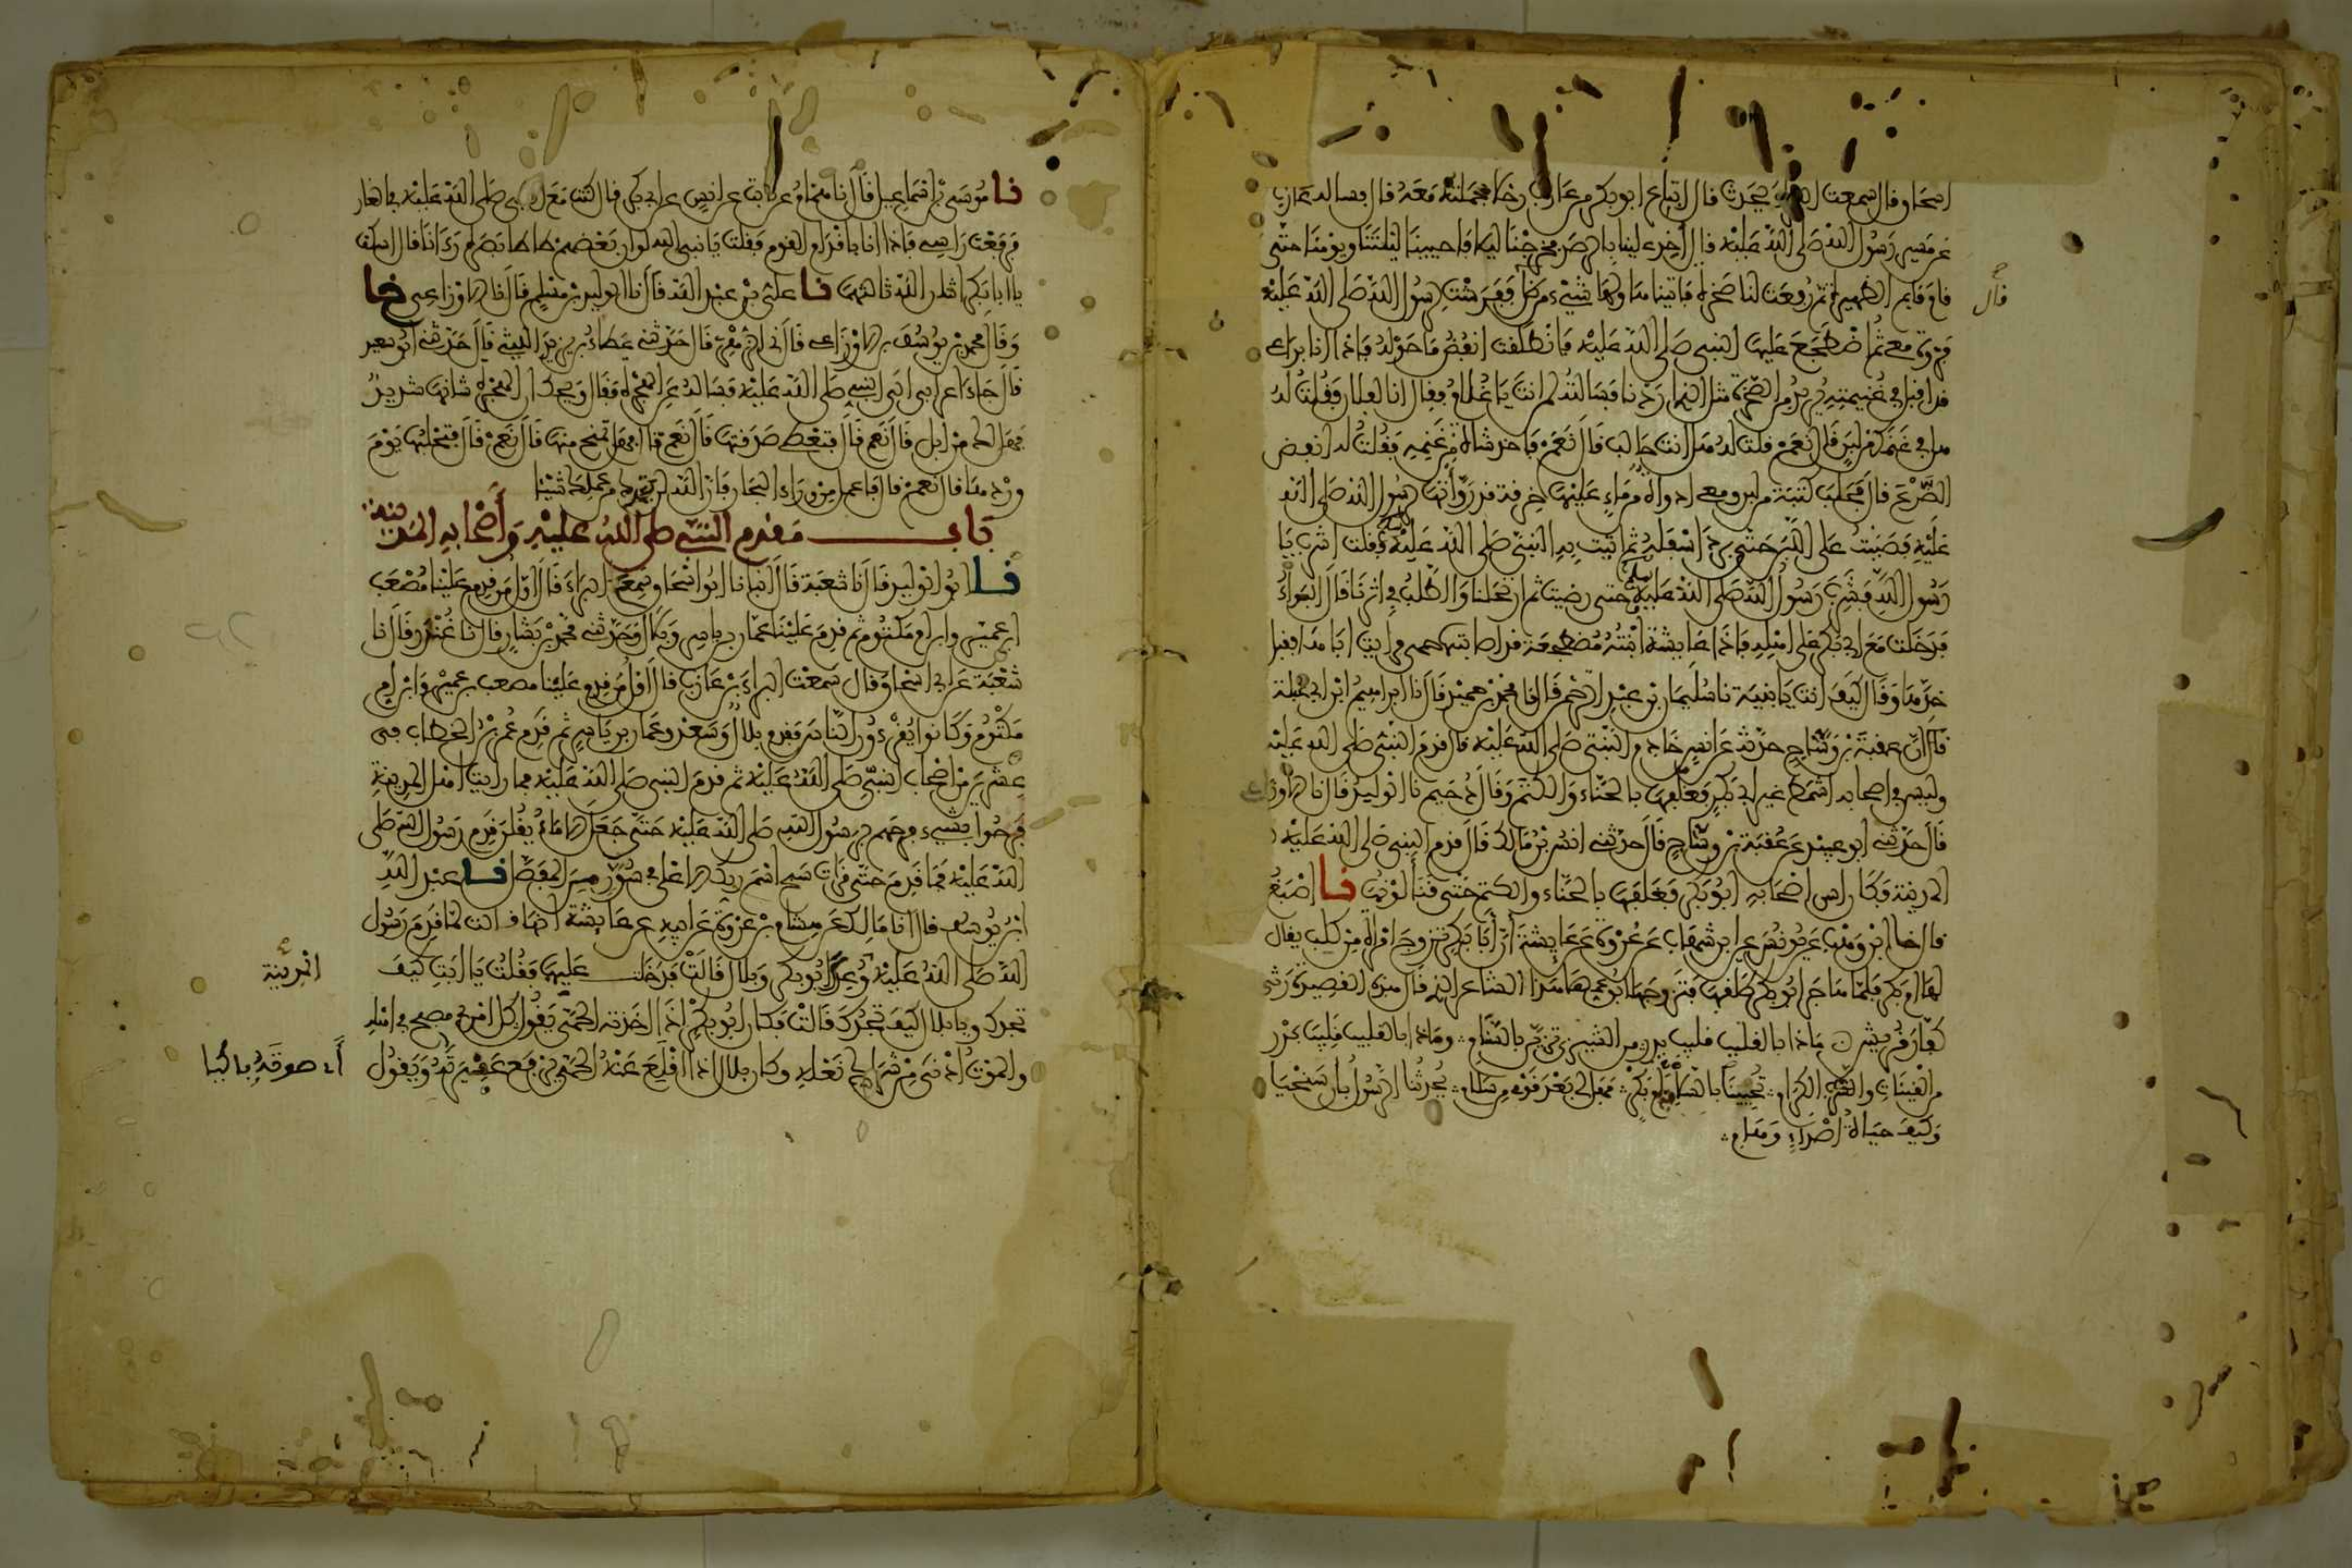 اسحاق قال سمعت البراء يحدث قال ابتاع ابو بكر من عازب رحلا فحملته معه قال فساله عازب
عن مسير رسول الله صلى الله عليه قال أخذ علينا بالرصد فخرجنا ليلا فاحيينا ليلتنا ويومنا حتى
قام قايم الظهيرة ثم رفعت لنا صخرة فاتيناها ولها شيء من ظل ففرشت لرسول الله صلى الله عليه
قال
فروة معي ثم اضطجع عليها النبي صلى الله عليه فانطلقت انفض ما حوله فاذا انا براع
قد اقبل في غنيمته يريد من الصخرة مثل الذي اردنا فسالته لمن انت يا غلام فقال انا لفلان فقلت له
هل في غنمك من لبن قال نعم قلت له هل انت حالب قال نعم فاخذ شاة من غنمه فقلت له انفض
الضرع قال فحلب كثبة من لبن ومعي اداوة من ماء عليها خرقة قد رواتها لرسول الله صلى الله
عليه فصببت على اللبن حتى برد اسفله ثم اتيت به النبي صلى الله عليه فقلت اشرب يا
رسول الله فشرب رسول الله صلى الله عليه حتى رضيت ثم ارتحلنا والطلب في اثرنا قال البراء
فدخلت مع ابي بكر على اهله فاذا عايشة ابنته مضطجعة قد اصابتها حمى فرايت اباها يقبل
خدها وقال كيف انت يا بنية نا سليمان بن عبد الرحمن قال نا محمد بن حمير قال نا ابراهيم ابن ابي عبلة
ان عقبة بن وساج حدثه عن انس خادم النبي صلى الله عليه قال قدم النبي صلى الله عليه
وليس في اصحابه اشمط غير ابي بكر فغلفها بالحناء والكتم وقال دحيم نا الوليد قال نا الاوزاعي
قال حدثني ابو عبيد عن عقبة بن وساج قال حدثني انس بن مالك قال قدم النبي صلى الله عليه
المدينة فكان اسن اصحابه ابو بكر فغلفها بالحناء والكتم حتى قنا لونها نا اصبغ
قال انا ابن وهب عن يونس عن ابن شهاب عن عروة عن عايشة ان ابا بكر تزوج امراة من كلب يقال
لها ام بكر فلما هاجر ابو بكر طلقها فتزوجها ابن عمها هذا الشاعر الذي قال هذه القصيدة رثى
كفار قريش ماذا بالقليب قليب بدر من الشيزى تزين بالسنام وماذا بالقليب قليب بدر
من القينات والشرب الكرام تحيينا بالسلامة ام بكر فهل لي بعد قومي من سلام يحدثنا الرسول بان سنحيا
وكيف حياة اصداء وهام
نا موسى بن اسماعيل قال نا همام عن ثابت عن انس عن ابي بكر قال كنت مع النبي صلى الله عليه في الغار
فرفعت راسي فاذا انا باقدام القوم فقلت يا نبي الله لو ان بعضهم طاطا بصره رءانا قال اسكت
يا ابا بكر اثنان الله ثالثهما نا علي بن عبد الله قال نا الوليد بن مسلم قال نا الاوزاعي
وقال محمد بن يوسف نا الاوزاعي قال نا الزهري قال حدثني عطاء بن يزيد الليثي قال حدثني ابو سعيد
قال جاء اعرابي الى النبي صلى الله عليه فساله عن الهجرة فقال ويحك ان الهجرة شانها شديد
فهل لك من ابل قال نعم قال فتعطي صدقتها قال نعم قال فهل تمنح منها قال نعم قال فتحلبها يوم
وردها قال نعم قال فاعمل من وراء البحار فان الله لن يترك من عملك شيئا
باب مقدم النبي صلى الله عليه وأصحابه المدينة
نا ابو الوليد قال نا شعبة قال انبانا ابو اسحاق سمع البراء قال اول من قدم علينا مصعب
ابن عمير وابن ام مكتوم ثم قدم علينا عمار بن ياسر وبلال وحدثني محمد بن بشار قال نا غندر قال نا
شعبة عن ابي اسحاق قال سمعت البراء بن عازب قال اول من قدم علينا مصعب بن عمير وابن ام
مكتوم وكانوا يقرءون الناس فقدم بلال وسعد وعمار بن ياسر ثم قدم عمر بن الخطاب في
عشرين من اصحاب النبي صلى الله عليه ثم قدم النبي صلى الله عليه فما رايت اهل المدينة
فرحوا بشيء فرحهم برسول الله صلى الله عليه حتى جعل الاماء يقلن قدم رسول الله صلى
الله عليه فما قدم حتى قرات سبح اسم ربك الاعلى في سور من المفصل نا عبد الله
ابن يوسف قال انا مالك عن هشام بن عروة عن ابيه عن عايشة انها قالت لما قدم رسول
الله صلى الله عليه وعك ابو بكر وبلال قالت فدخلت عليهما فقلت يا ابت كيف
المدينة
تجدك ويا بلال كيف تجدك قالت فكان ابو بكر اذا اخذته الحمى يقول كل امرئ مصبح في اهله
والموت ادنى من شراك نعله وكان بلال اذا اقلع عنه الحمى يرفع عقيرته ويقول